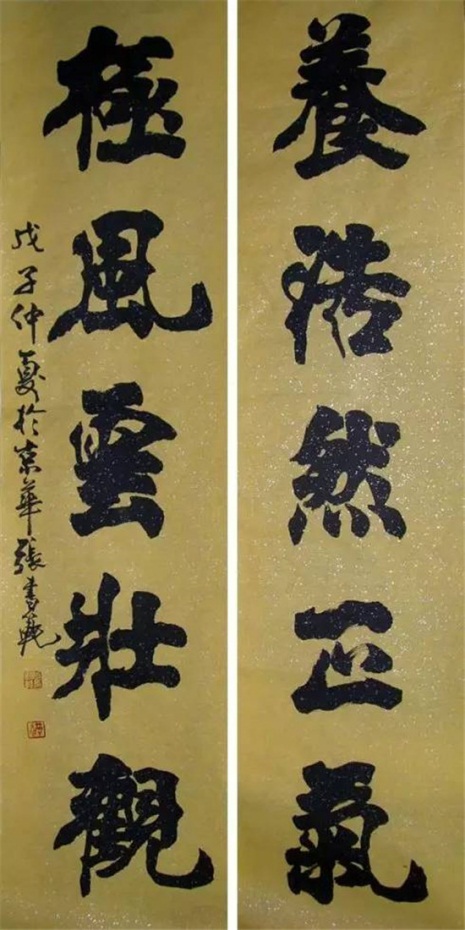 養浩然正氣
極風雲壯觀
戊子仲夏於京華張書範